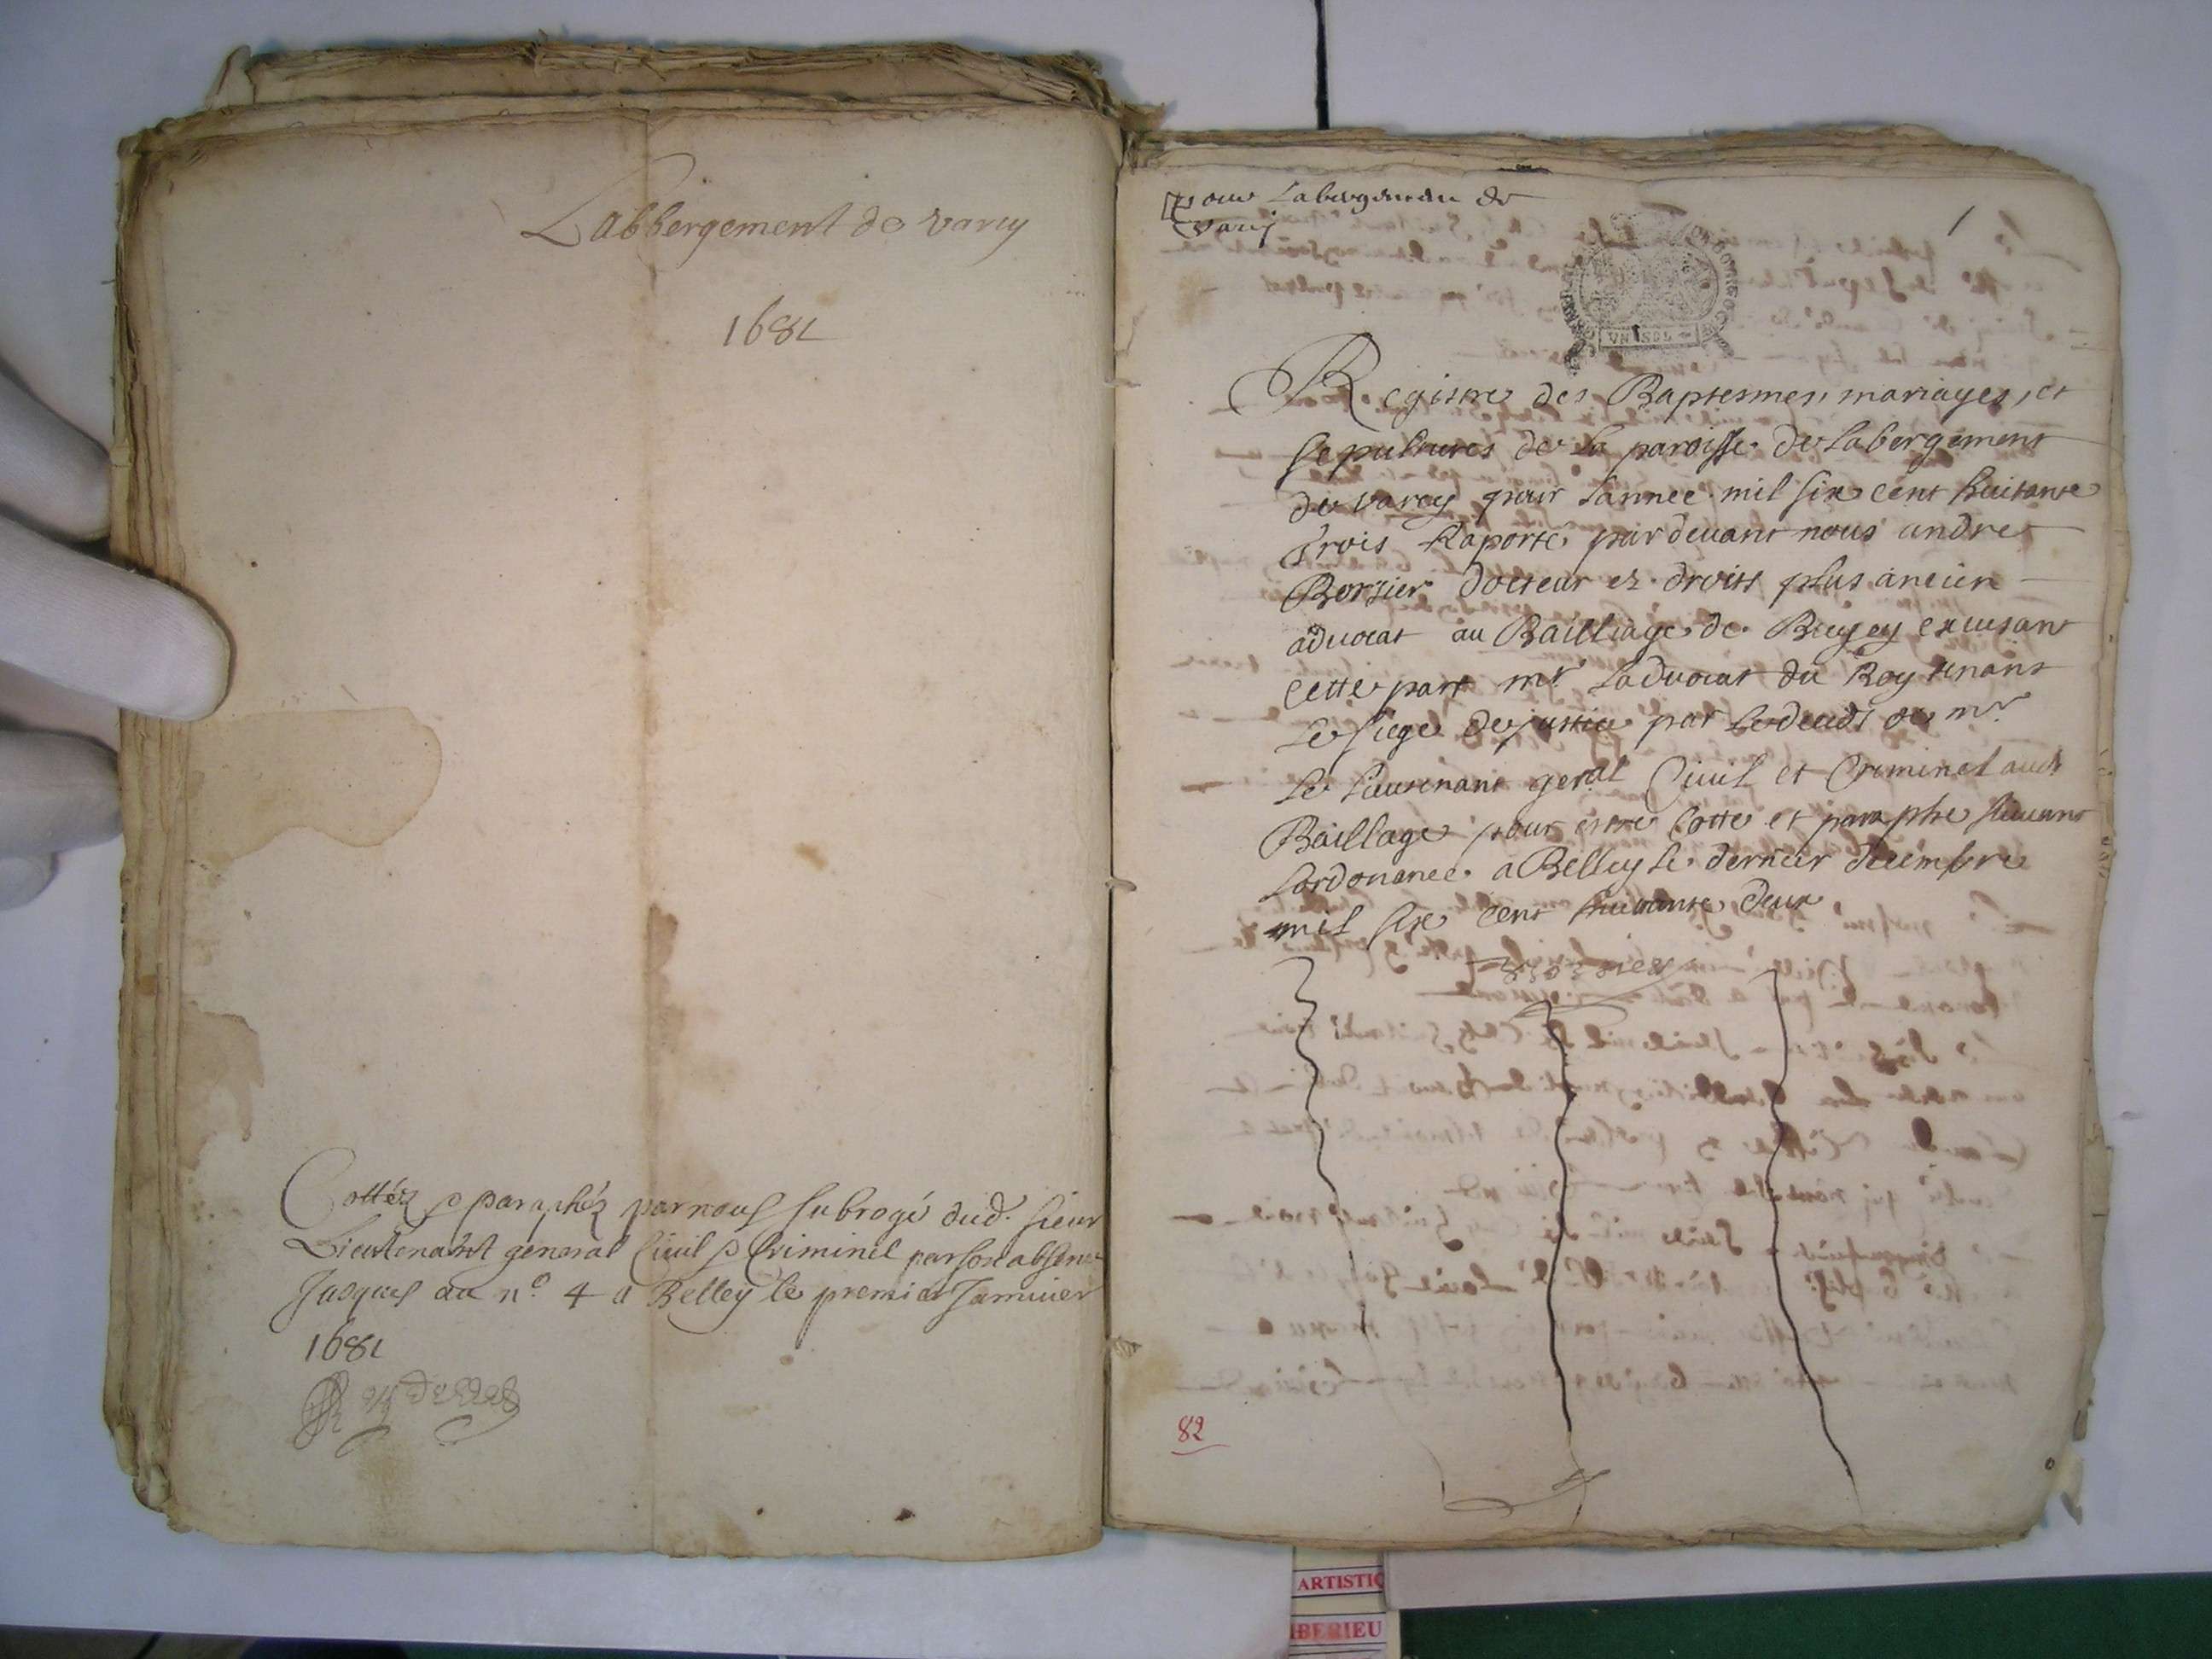 Labbergement de varey
1681
Cottéz & paraphéz par nous subrogé dud. sieur
Lieutenant general Civil & Criminel par son absence
Jusques au n.º 4 a Belley le premier Januier
1681
pour Labergement de
Varey
1
VN SOL
Registre des Baptesmes, mariages, et
sepultures de la paroisse de Labergement
de varey pour lannee mil six cent huitante
trois Raporté pardeuant nous andre
Borsier docteur ez droits plus ancien
aduocat au Bailliage de Bugey excusant
cette part mr. Laduocat du Roy tenant
le siege de justice par le deceds de mr.
le Lieutenant geral Ciuil et Criminel audt
Baillage pour estre Cotté et paraphé suiuant
Lordonance a Belley le dernier decembre
mil six cent huitante deux
Borsier
82
ARTISTIC
IBERIEU